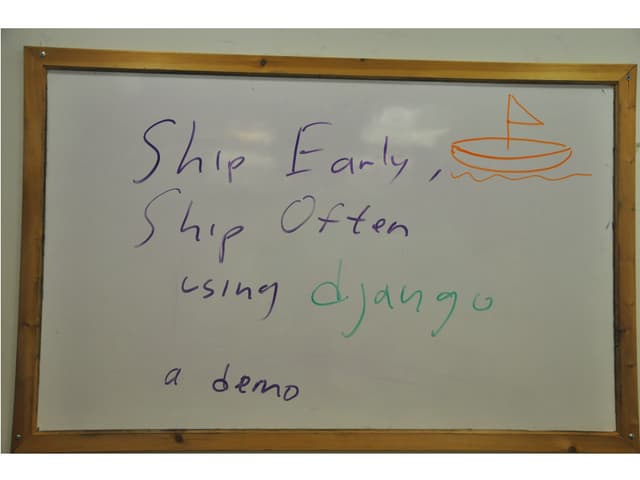 Ship Early,
Ship Often
using django
a demo